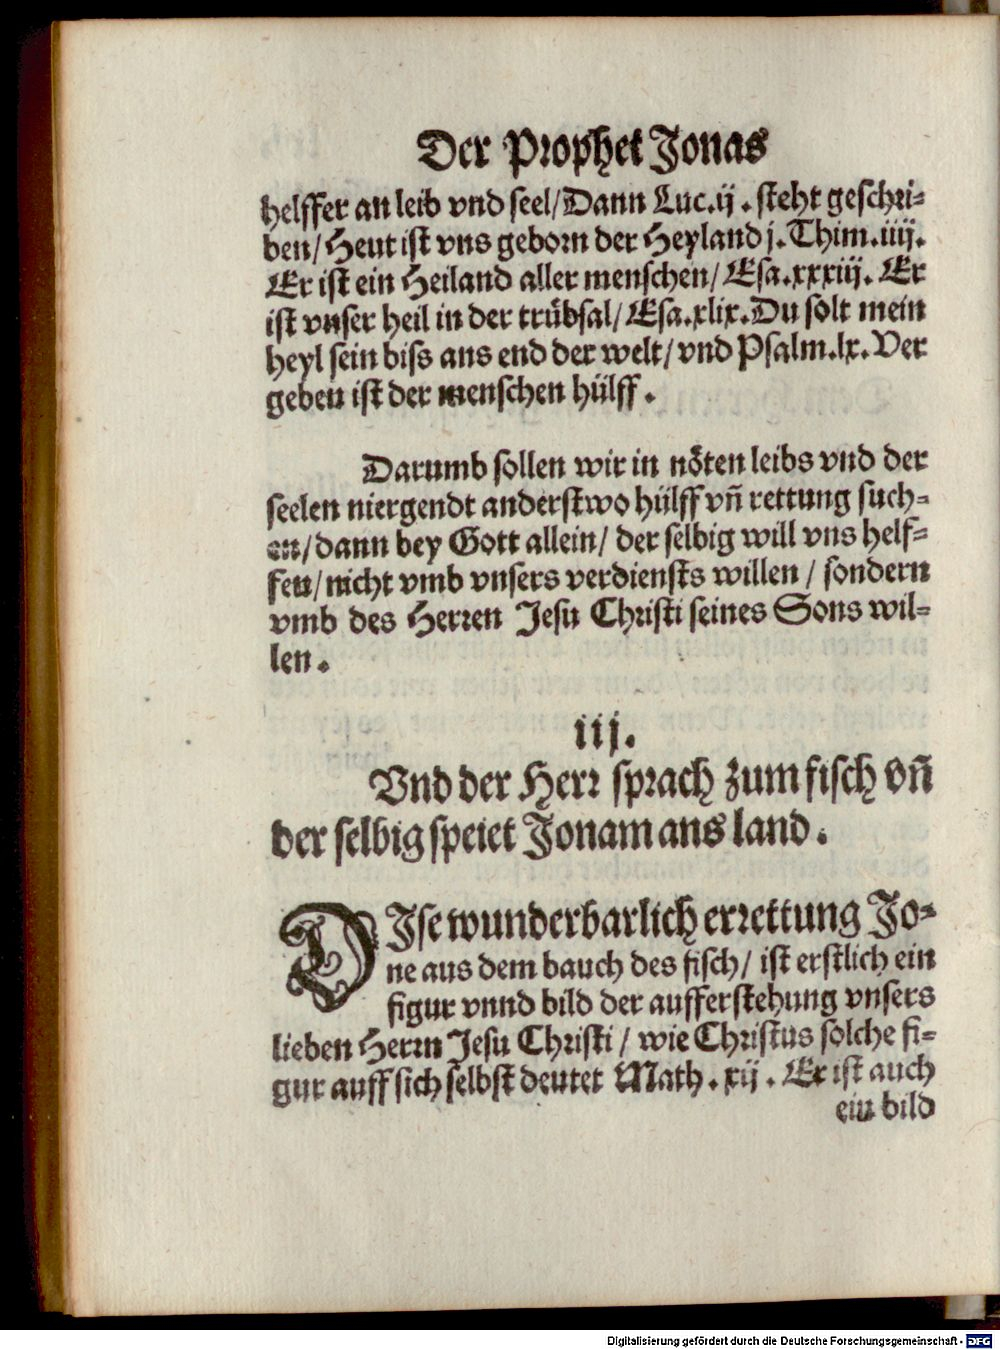 Der Prophet Jonas
helffer an leib vnd seel/Dann Luc.ij. steht geschri-
ben/Heut ist vns geborn der Heyland j. Thim.iiij.
Er ist ein Heiland aller menschen/ Esa.xxxiij. Er
ist vnser heil in der trübsal/ Esa.xlix.Du solt mein
heyl sein biss ans end der welt/ vnd Psalm.lx. Ver
geben ist der menschen hülff.
Darumb sollen wir in nöten leibs vnd der
seelen niergendt anderstwo hülff vñ rettung such-
en/dann bey Gott allein/ der selbig will vns helf-
fen/nicht vmb vnsers verdiensts willen/ sondern
vmb des Herren Jesu Christi seines Sons wil-
len.
iij.
Vnd der Herr sprach zum fisch vñ
der selbig speiet Jonam ans land.
DIse wunderbarlich errettung Jo-
ne aus dem bauch des fisch/ ist erstlich ein
figur vnnd bild der aufferstehung vnsers
lieben Herrn Jesu Christi/ wie Christus solche fi-
gur auff sich selbst deutet Math. xij. Er ist auch
ein bild
Digitalisierung gefördert durch die Deutsche Forschungsgemeinschaft - DFG